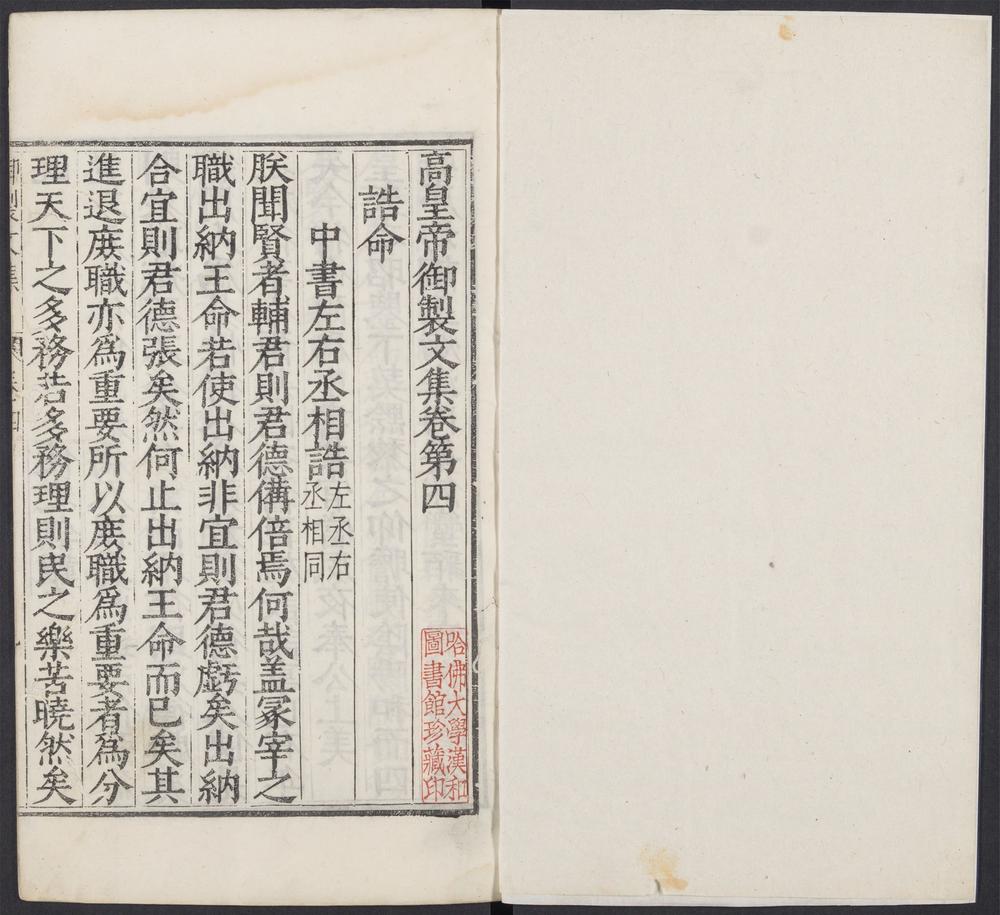 高皇帝御製文集卷第四
哈佛大學漢和
圖書館珍藏印
誥命
中書左右丞相誥左丞右
丞相同
朕聞賢者輔君則君德備倍焉何哉盖冢宰之
職出納王命若使出納非宜則君德虧矣出納
合宜則君德張矣然何止出納王命而已矣其
進退庻職亦爲重要所以庻職爲重要者爲分
理天下之多務若多務理則民之樂苦曉然矣